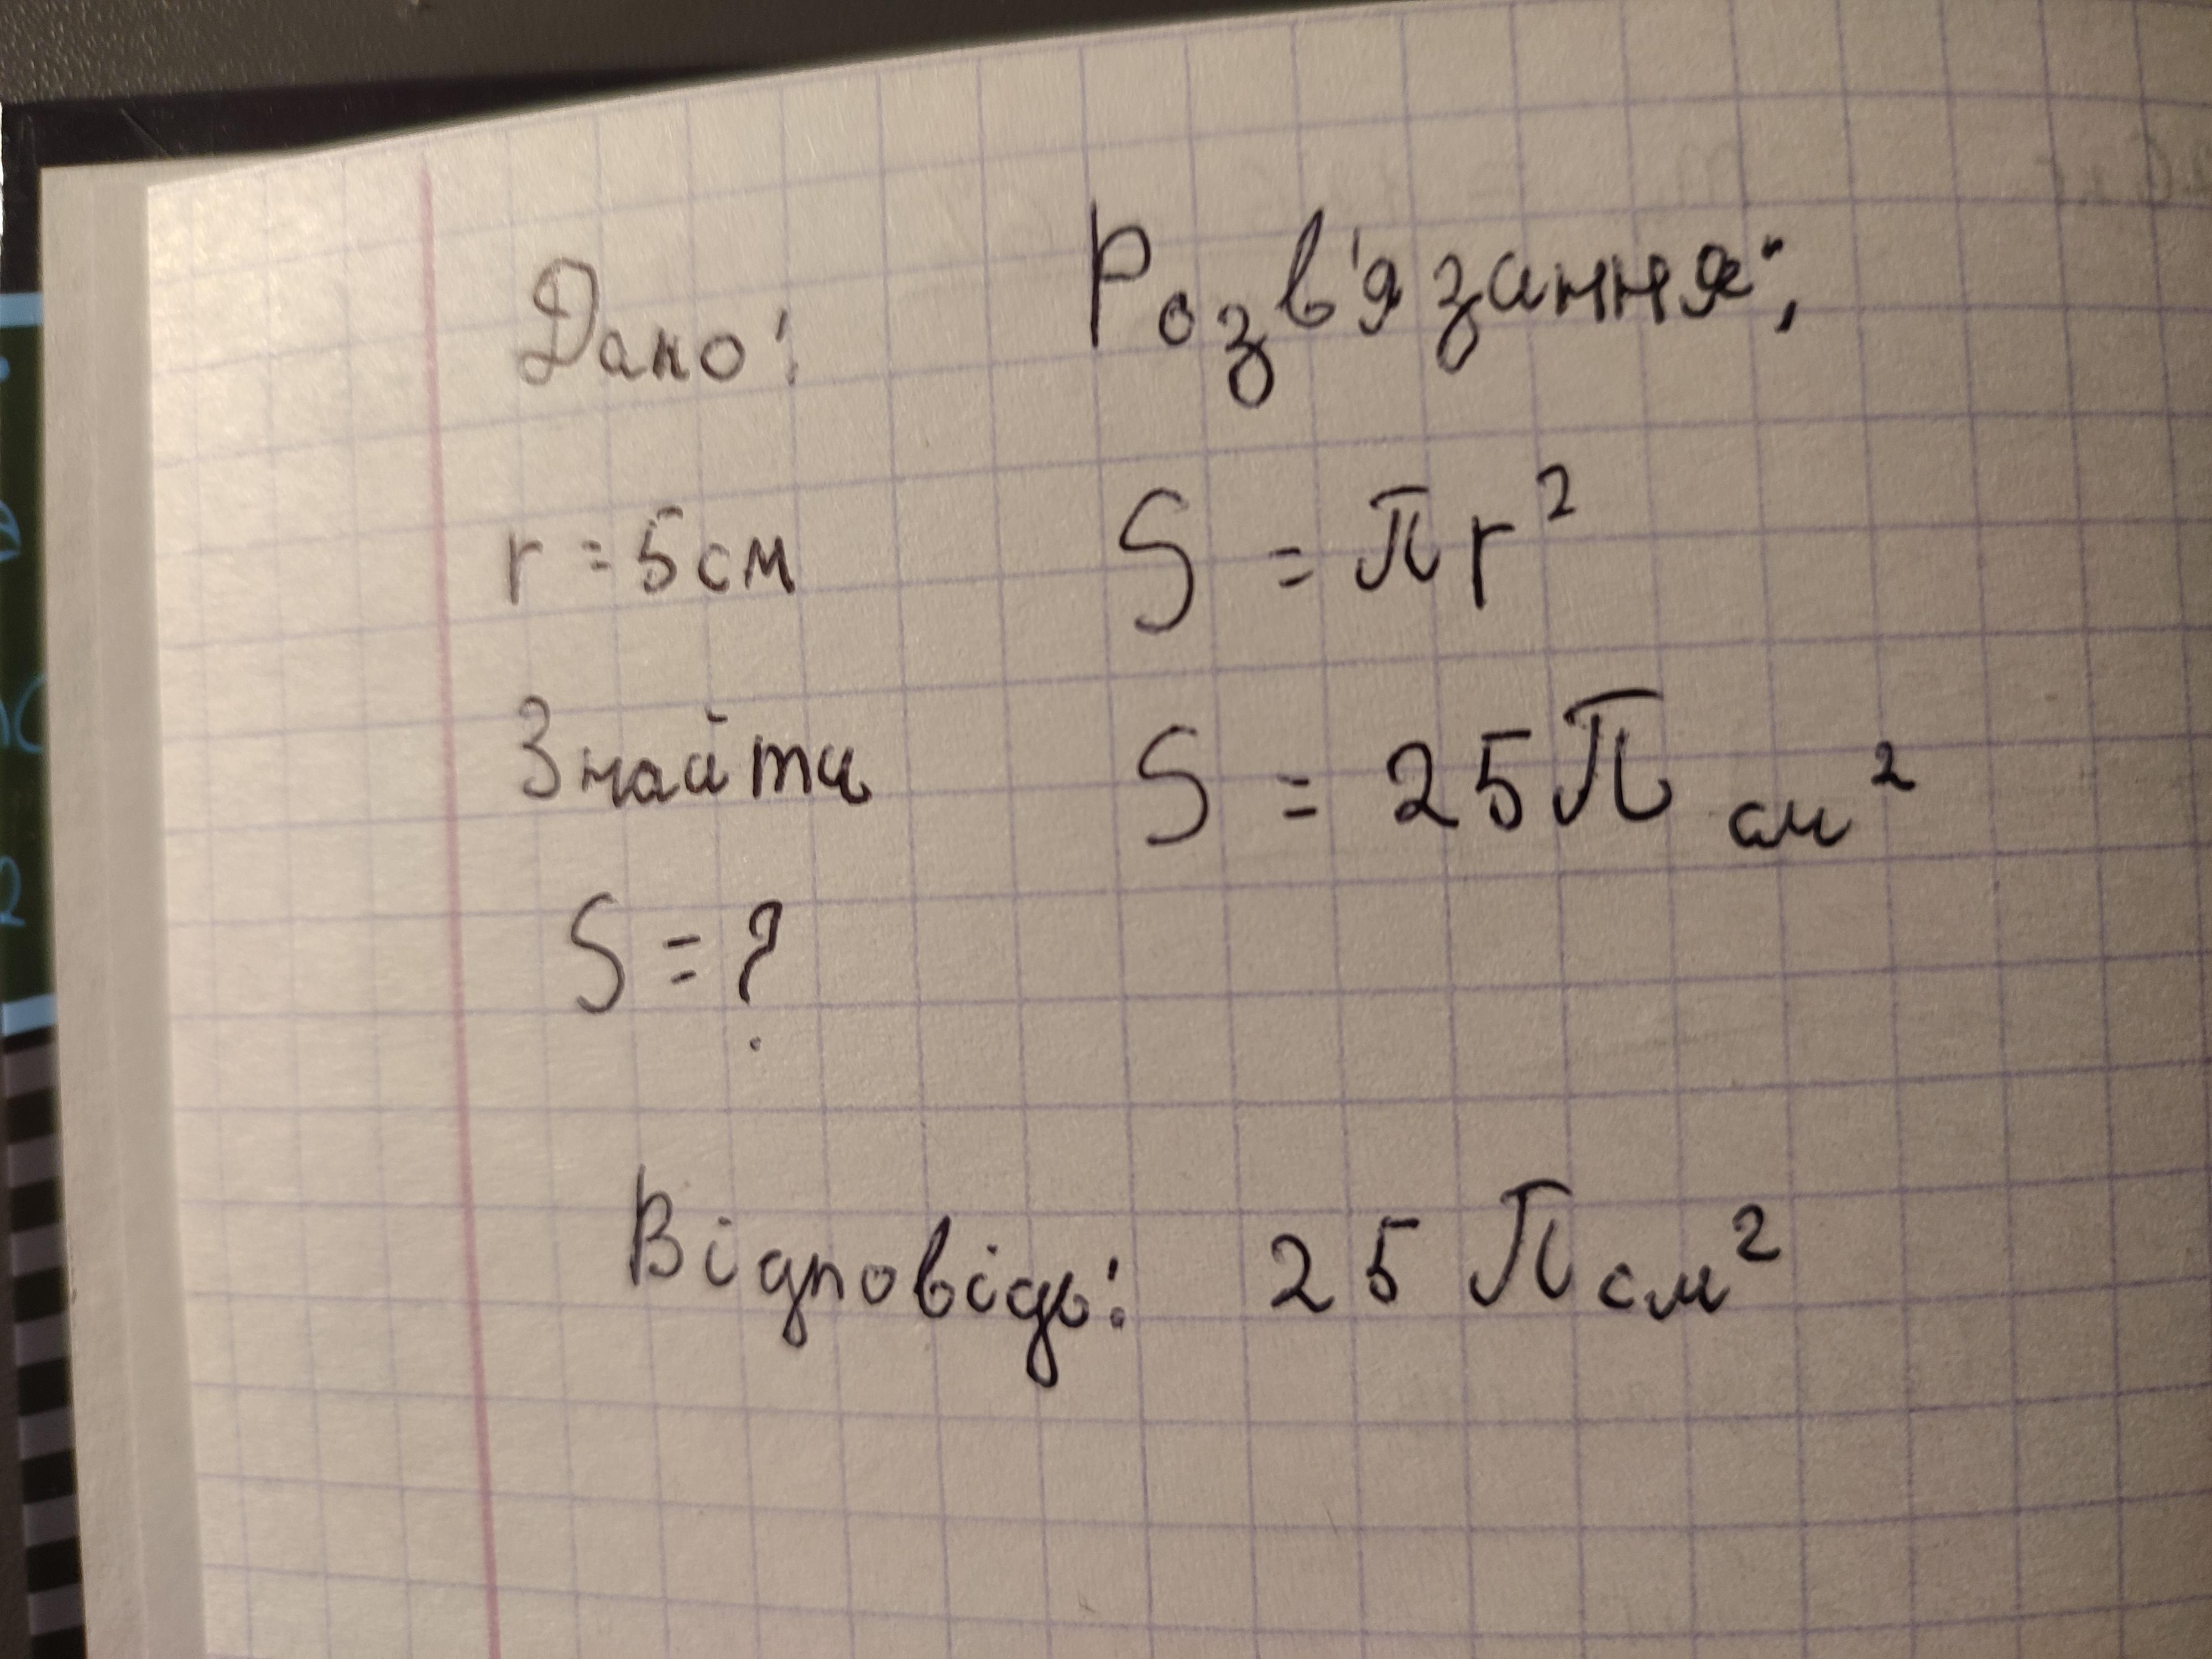 Дано:
r = 5 см
Знайти
S = ?
Розв'язання:
S = πr²
S = 25π см²
Відповідь: 25 π см²